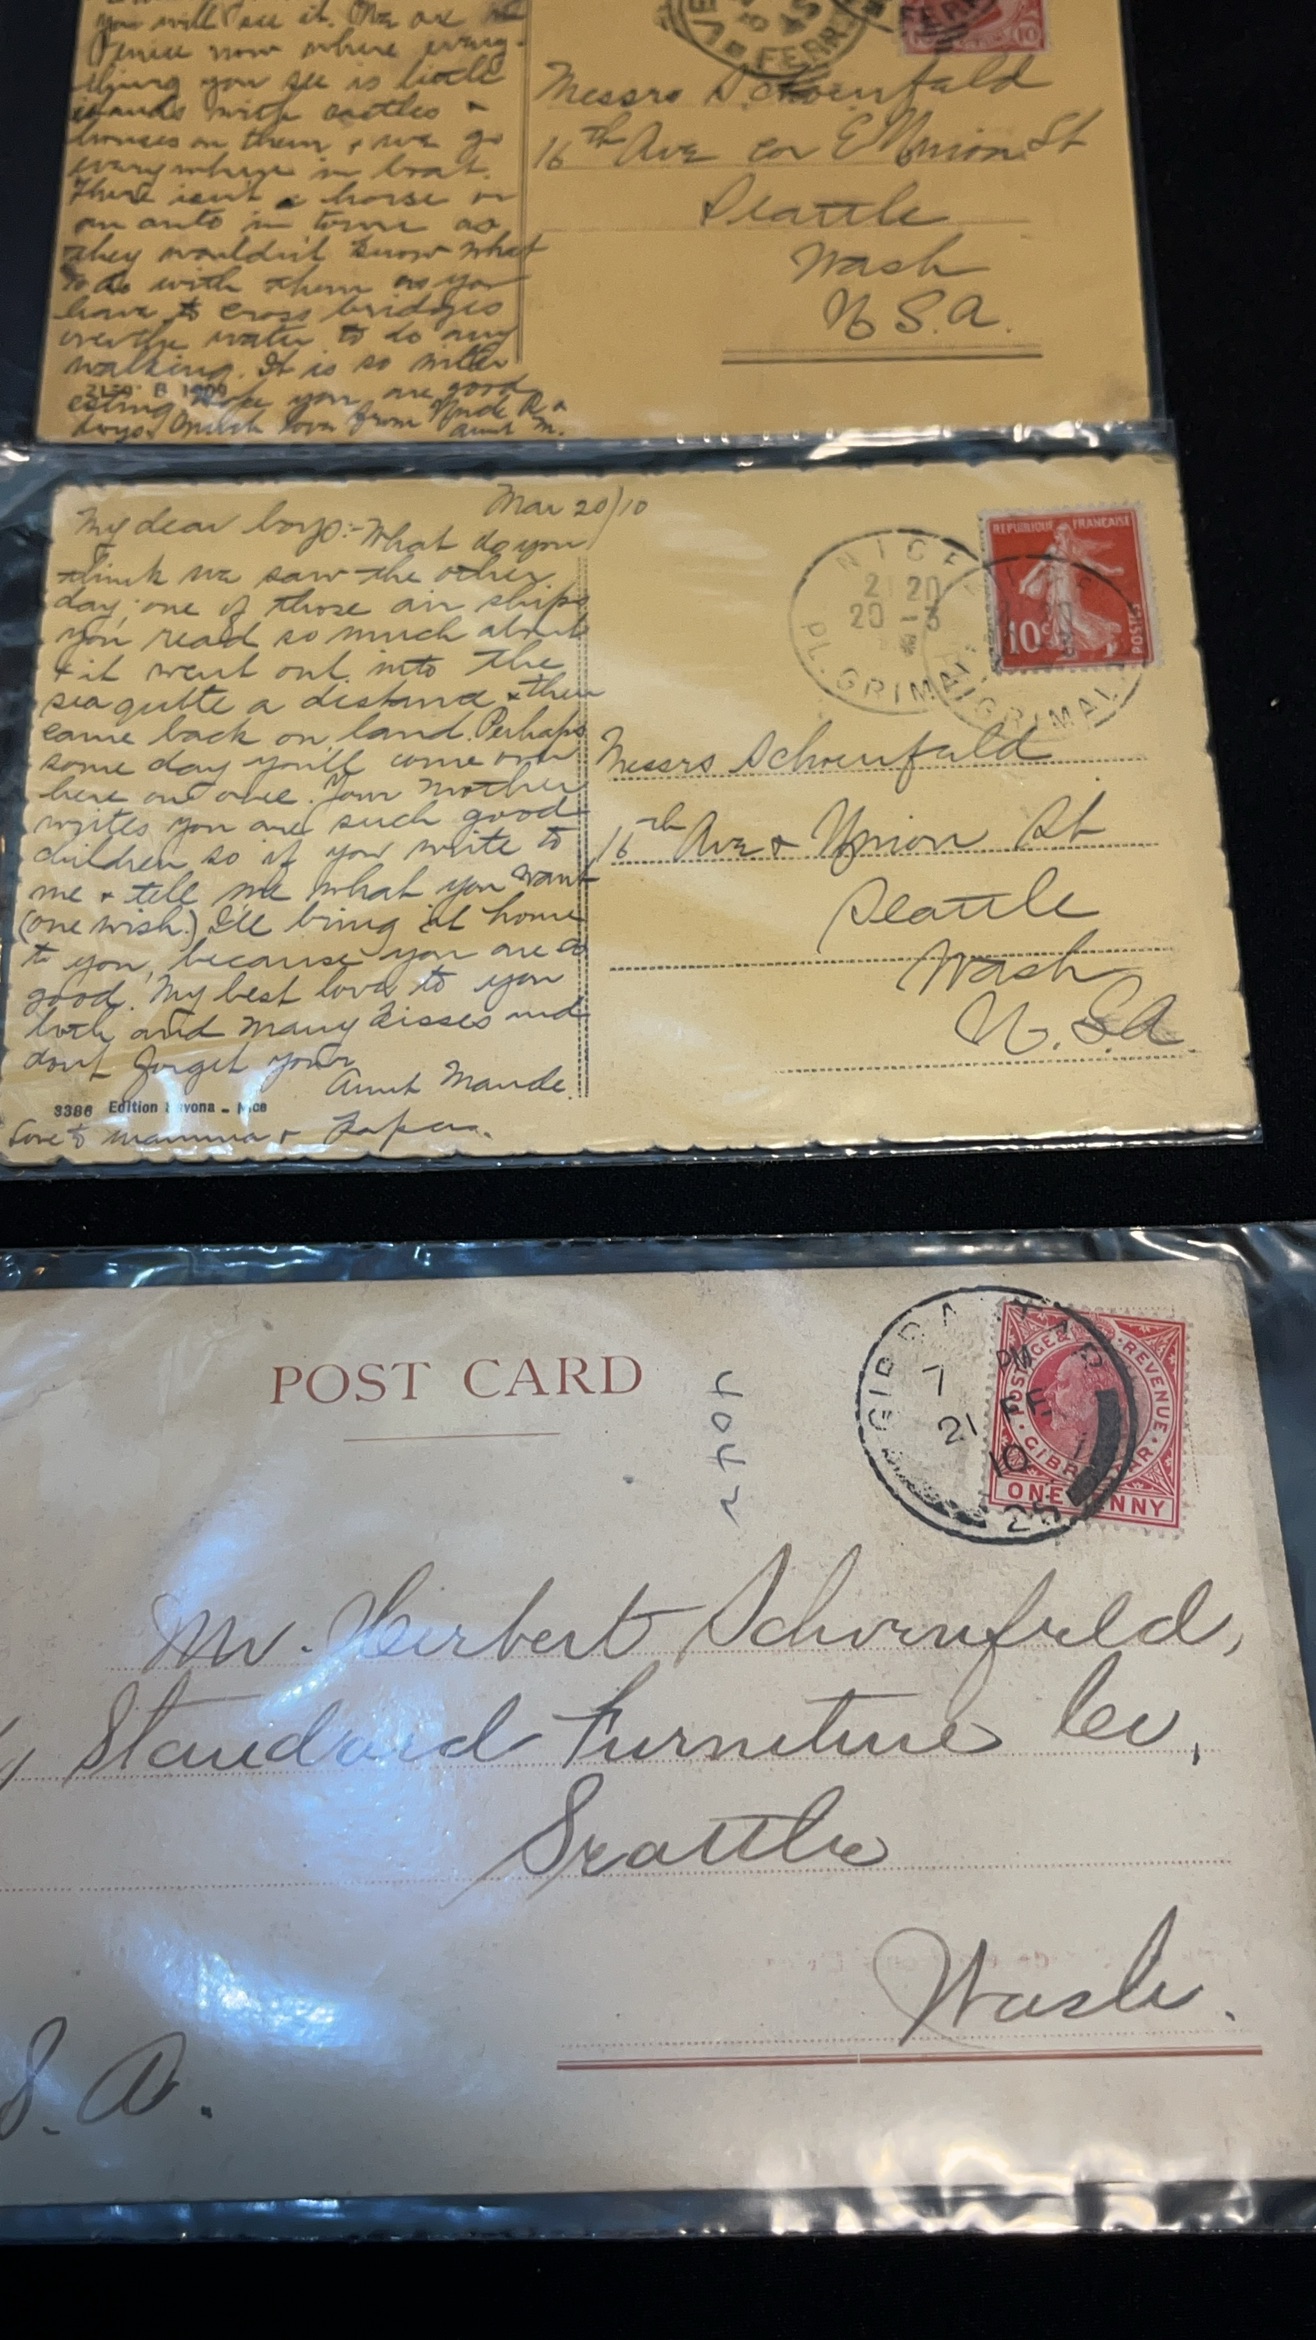 you will see it. We are in
Venice now where every-
thing you see is little
islands with castles +
houses on them + we go
everywhere in boat.
There isn't a horse or
an auto in town as
they wouldn't know what
to do with them as you
have to cross bridges
over the water to do any
walking. It is so inter
esting Hope you are good
boys. Much love from Uncle R. +
Aunt M.
FERR
10
Messrs Schoenfeld
16th Ave cor E Union St
Seattle
Wash
U.S.A.
Mar 20/10
My dear boys:- What do you
think we saw the other
day; one of those air ships
you read so much about
+ it went out into the
sea quite a distance + then
came back on land. Perhaps
some day you'll come over
here on one. Your mother
writes you are such good
children so if you write to
me + tell me what you want
(one wish.) I'll bring it home
to you, because you are so
good. My best love to you
both and many kisses and
dont forget your
Aunt Maude.
3386 Edition Savona - Nice
Love to mamma + Papa.
NICE
21 20
20 - 3
PL. GRIMALDI
REPUBLIQUE FRANÇAISE
10c
POSTES
Messrs Schoenfeld
16th Ave + Union St
Seattle
Wash
U.S.A.
POST CARD
GIBRALTAR
7 PM
21 FE
10
POSTAGE & REVENUE
GIBRALTAR
ONE PENNY
Mr. Herbert Schoenfeld,
Standard Furniture Co,
Seattle
Wash.
S. A.